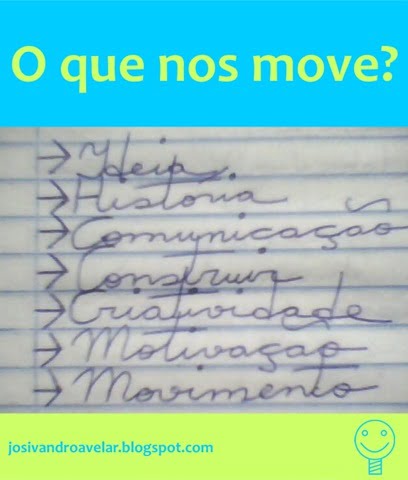 O que nos move?
→ Ideia
→ História
→ Comunicação
→ Construir
→ Criatividade
→ Motivação
→ Movimento
josivandroavelar.blogspot.com